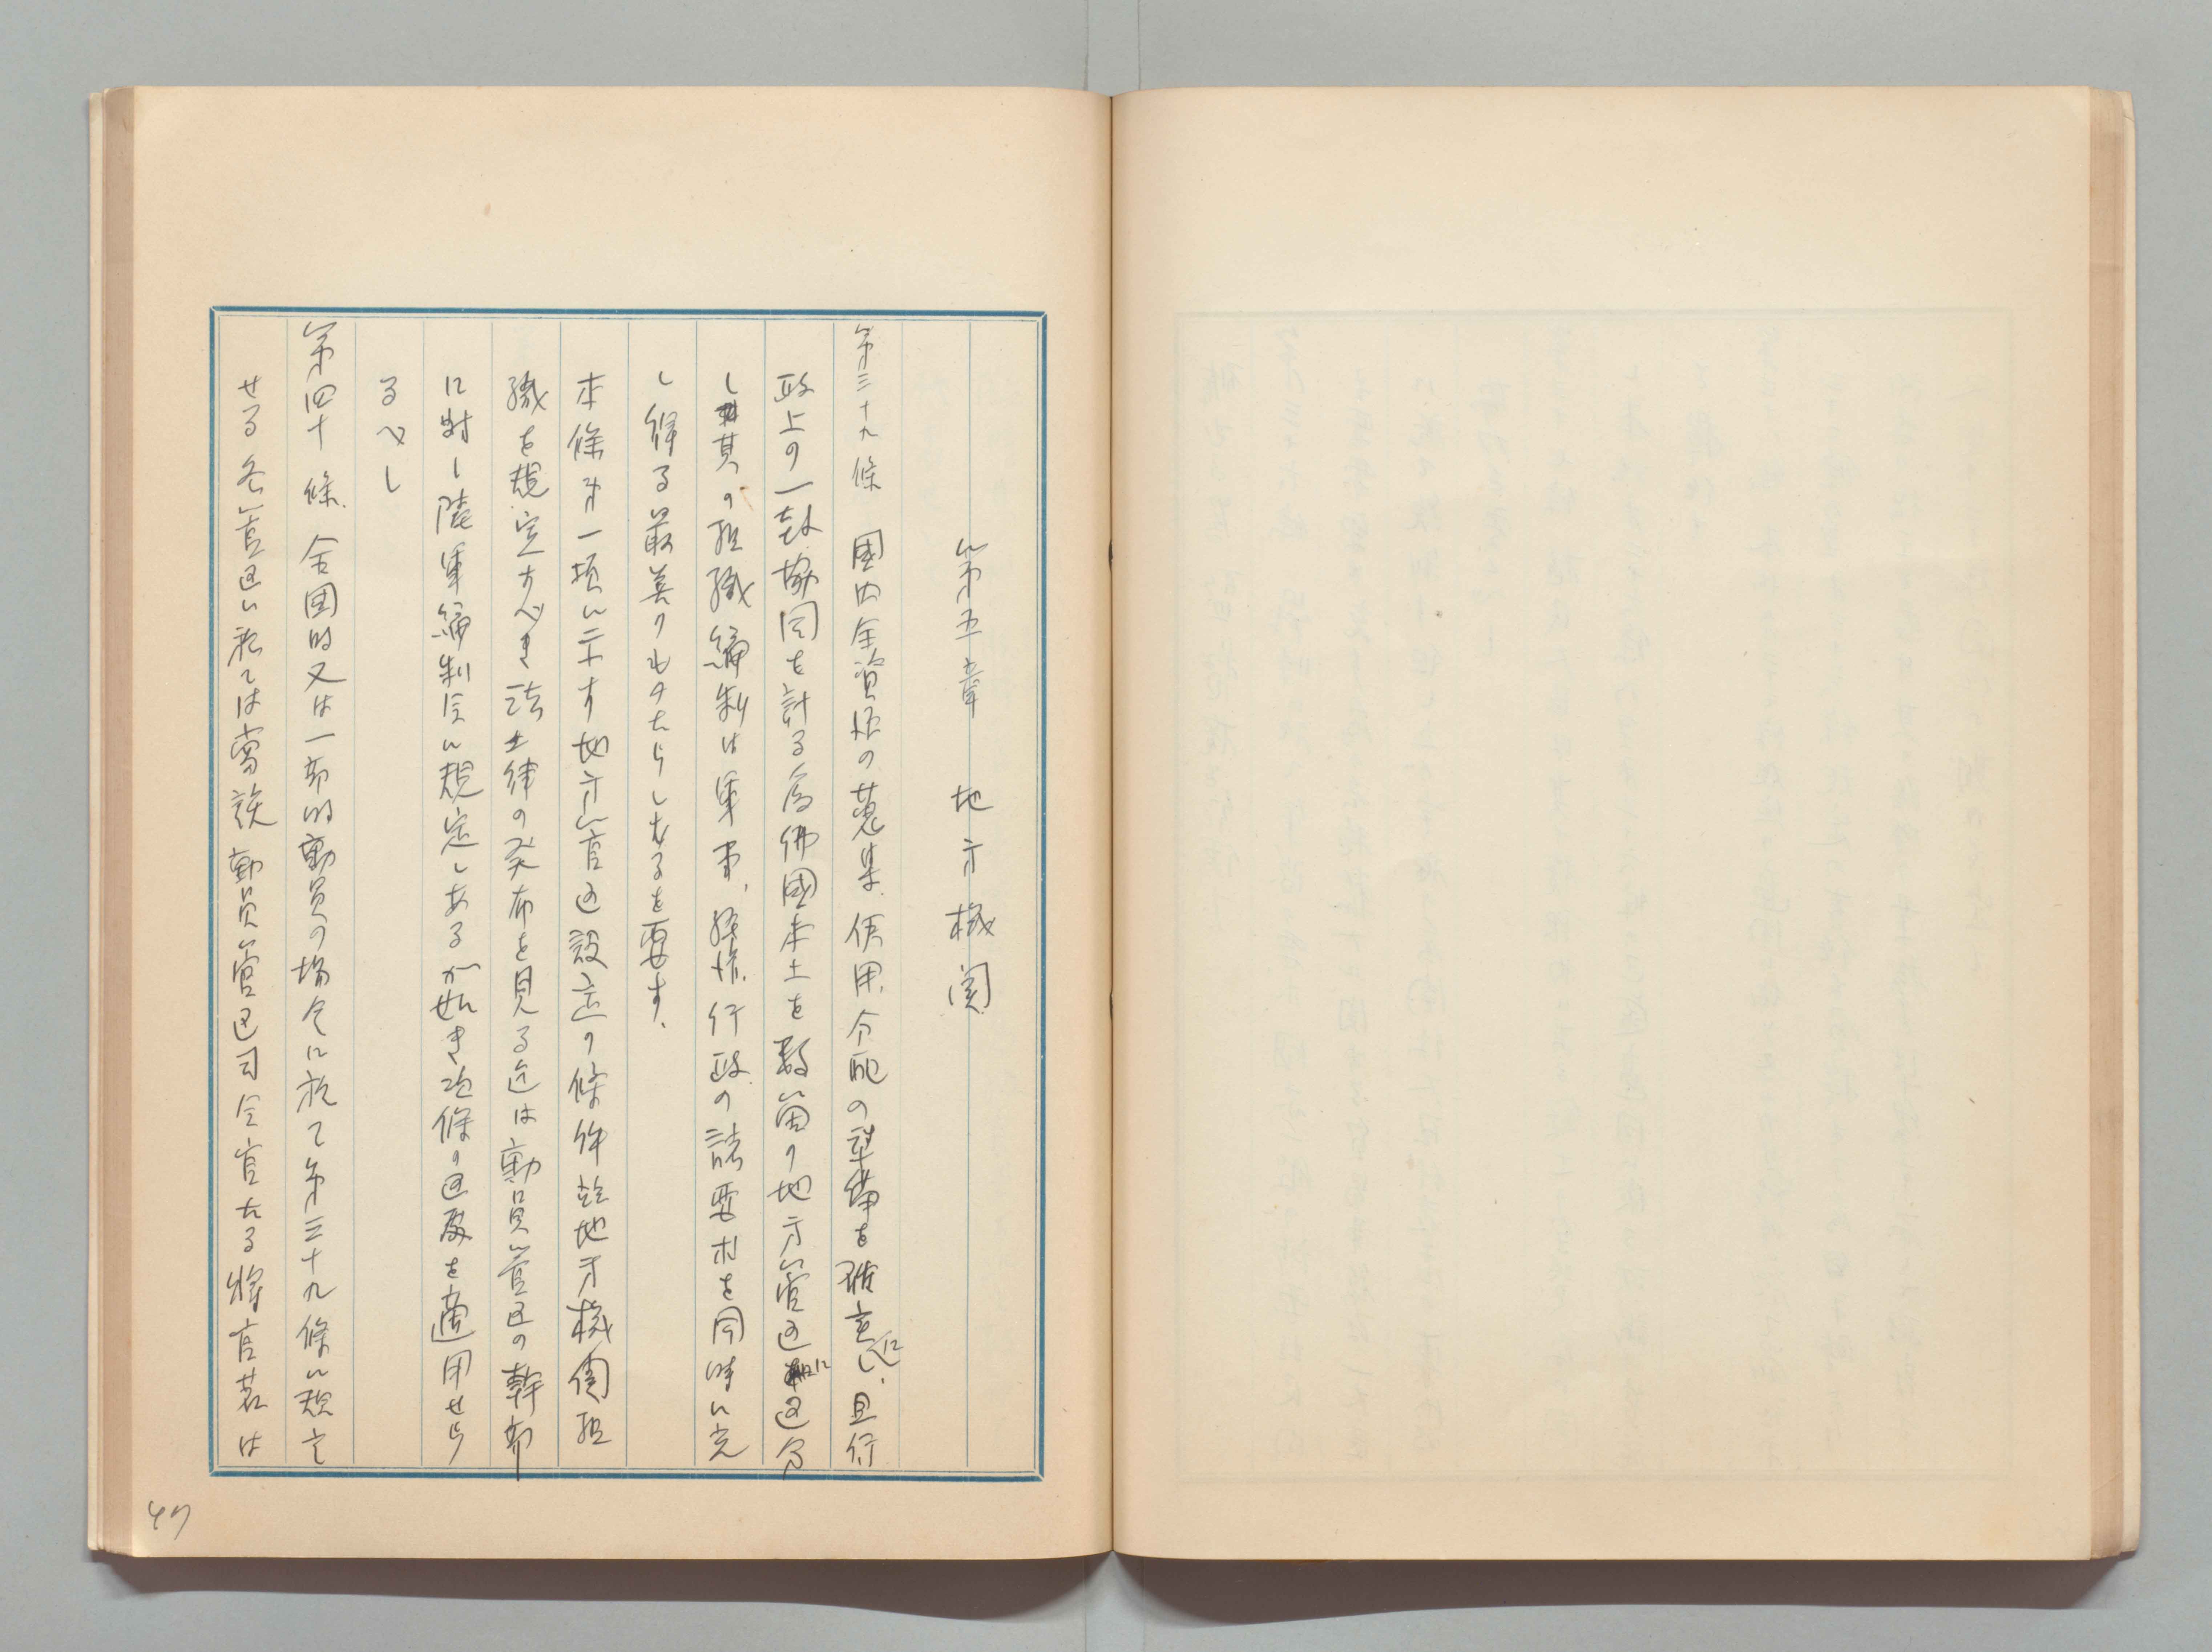 第五章　地方機関
第三十九條　國内全資源の蒐集、使用、分配の準備を確実にし、且行
政上の一致協同を計る為佛國本土を数箇の地方管区に区分
し其の組織編制は軍事、経済、行政の諸要求を同時に充
し得る最善のものたらしむるを要す、
本條第一項に示す地方管区設定の條件並地方機関組
織を規定すべき法律の発布を見る迄は動員管区の幹部
に対し陸軍編制令に規定しあるが如き次條の区処を適用せら
るべし
第四十條　全国的又は一部的動員の場合に於て第三十九條に規定
せる各管区に於ては当該動員管区司令官たる將官若は
47